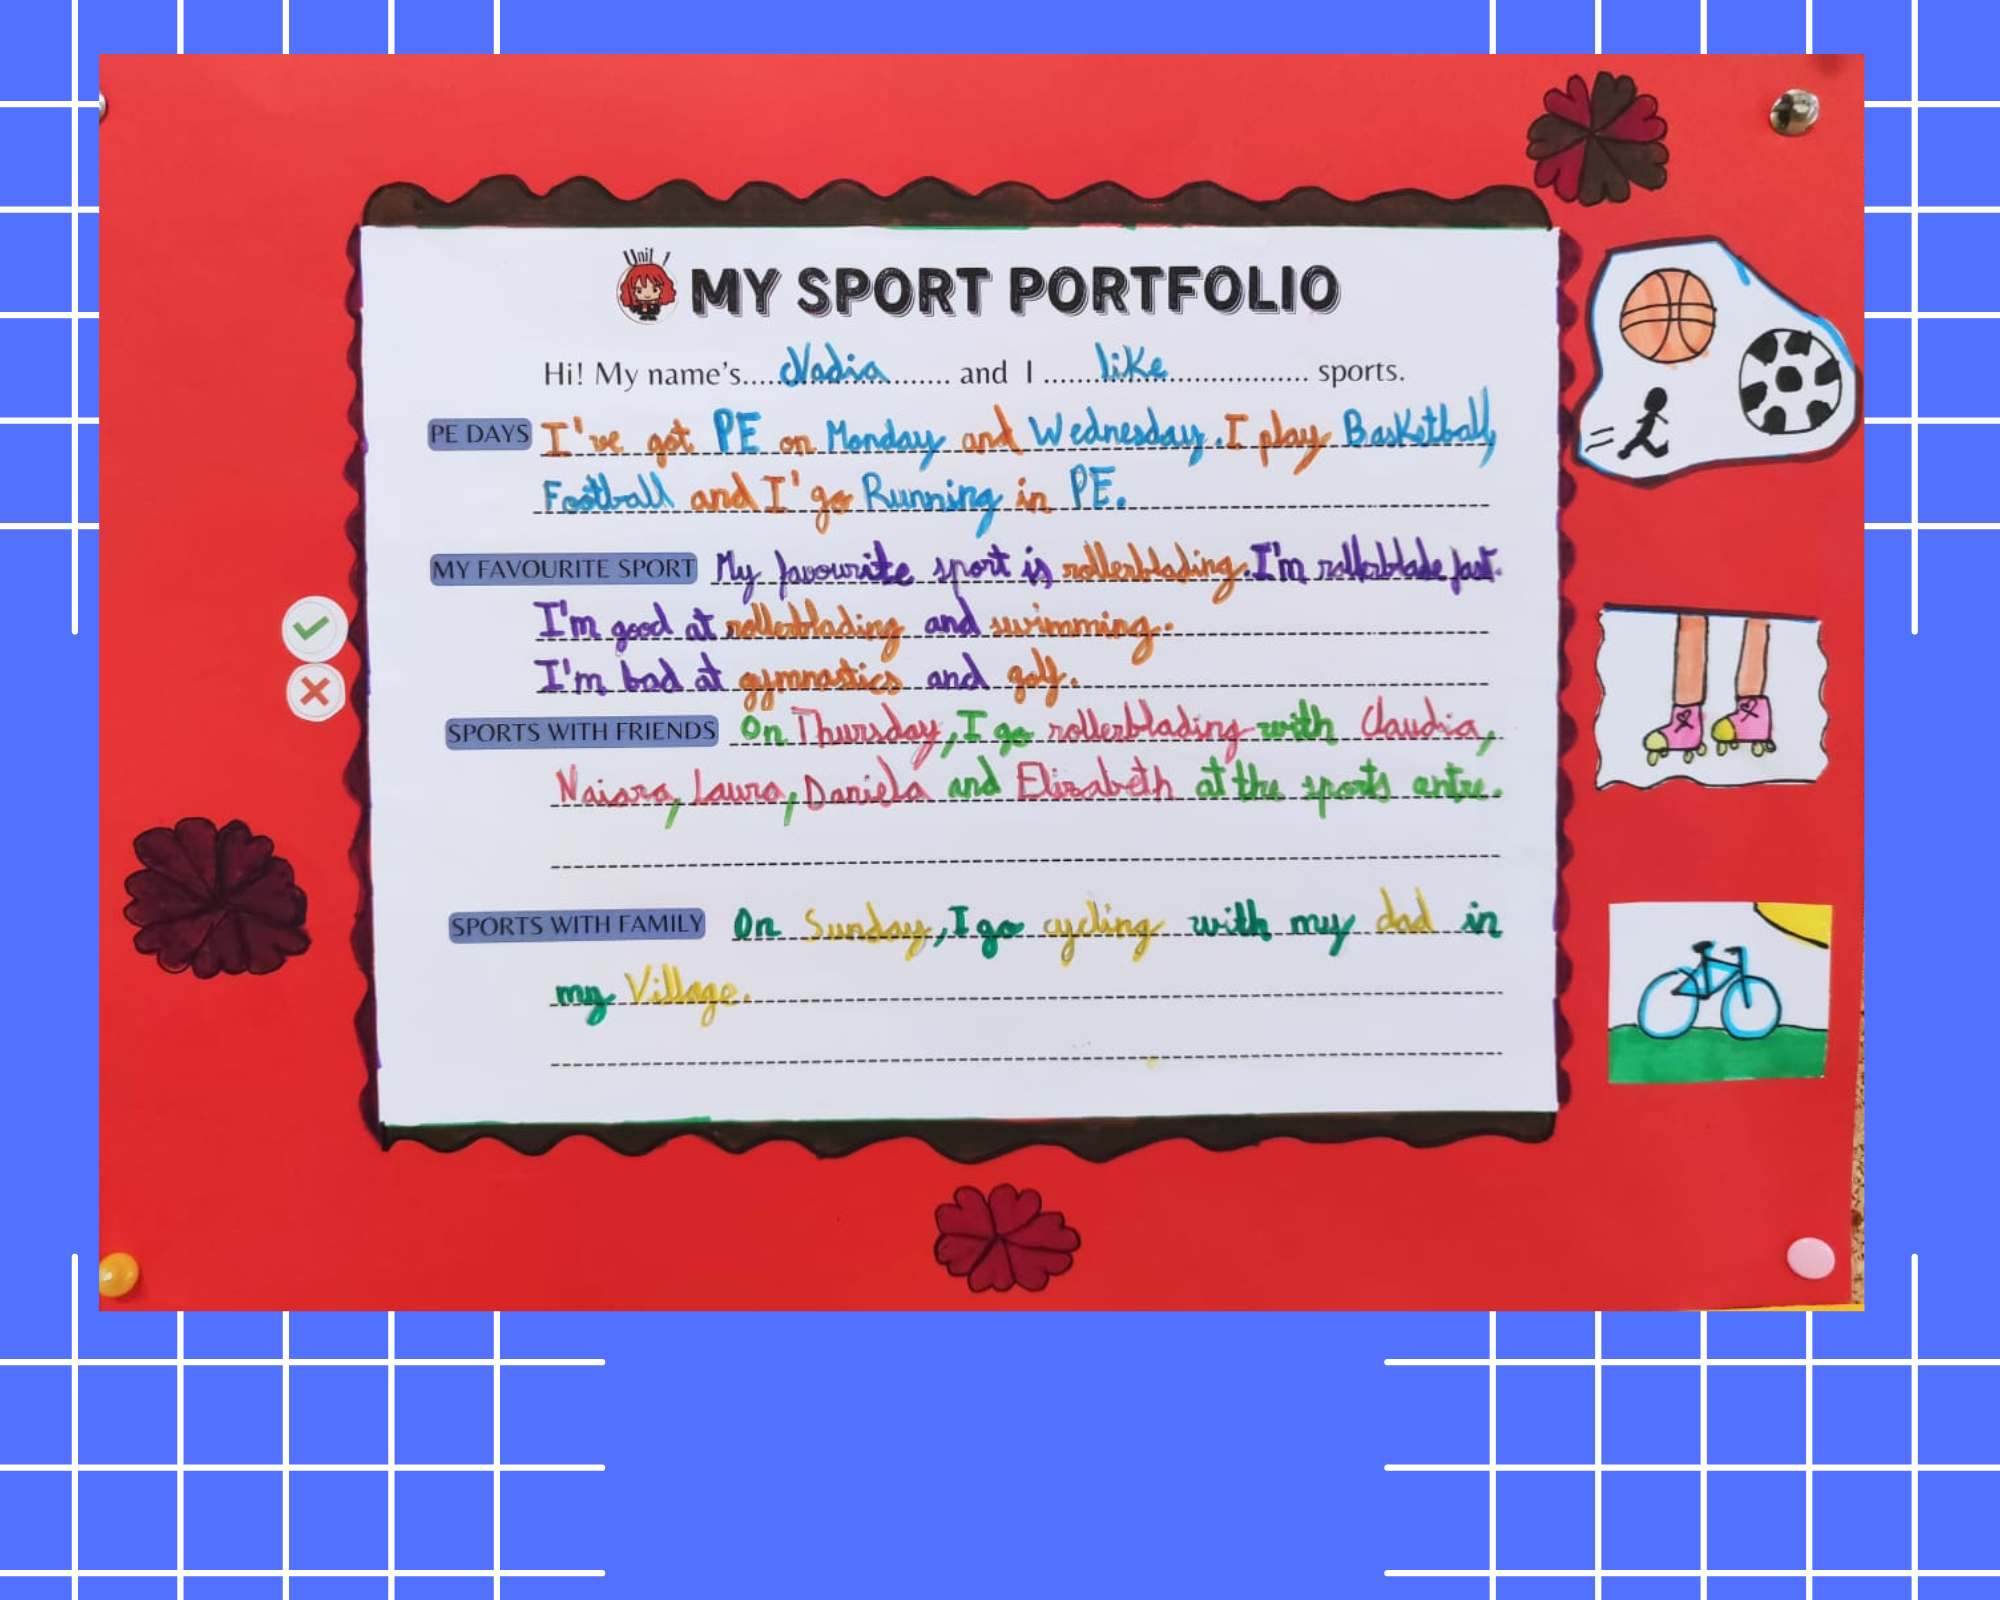 Unit 1
MY SPORT PORTFOLIO
Hi! My name's.... Nadia .......... and I ...... like .............................. sports.
PE DAYS I've got PE on Monday and Wednesday. I play Basketball,
Football and I' go Running in PE.
MY FAVOURITE SPORT My favourite sport is rollerblading. I'm rollerblade fast.
I'm good at rollerblading and swimming.
I'm bad at gymnastics and golf.
SPORTS WITH FRIENDS On Thursday, I go rollerblading with Claudia,
Naiara, Laura, Daniela and Elizabeth at the sports entre.
SPORTS WITH FAMILY On Sunday, I go cycling with my dad in
my Village.